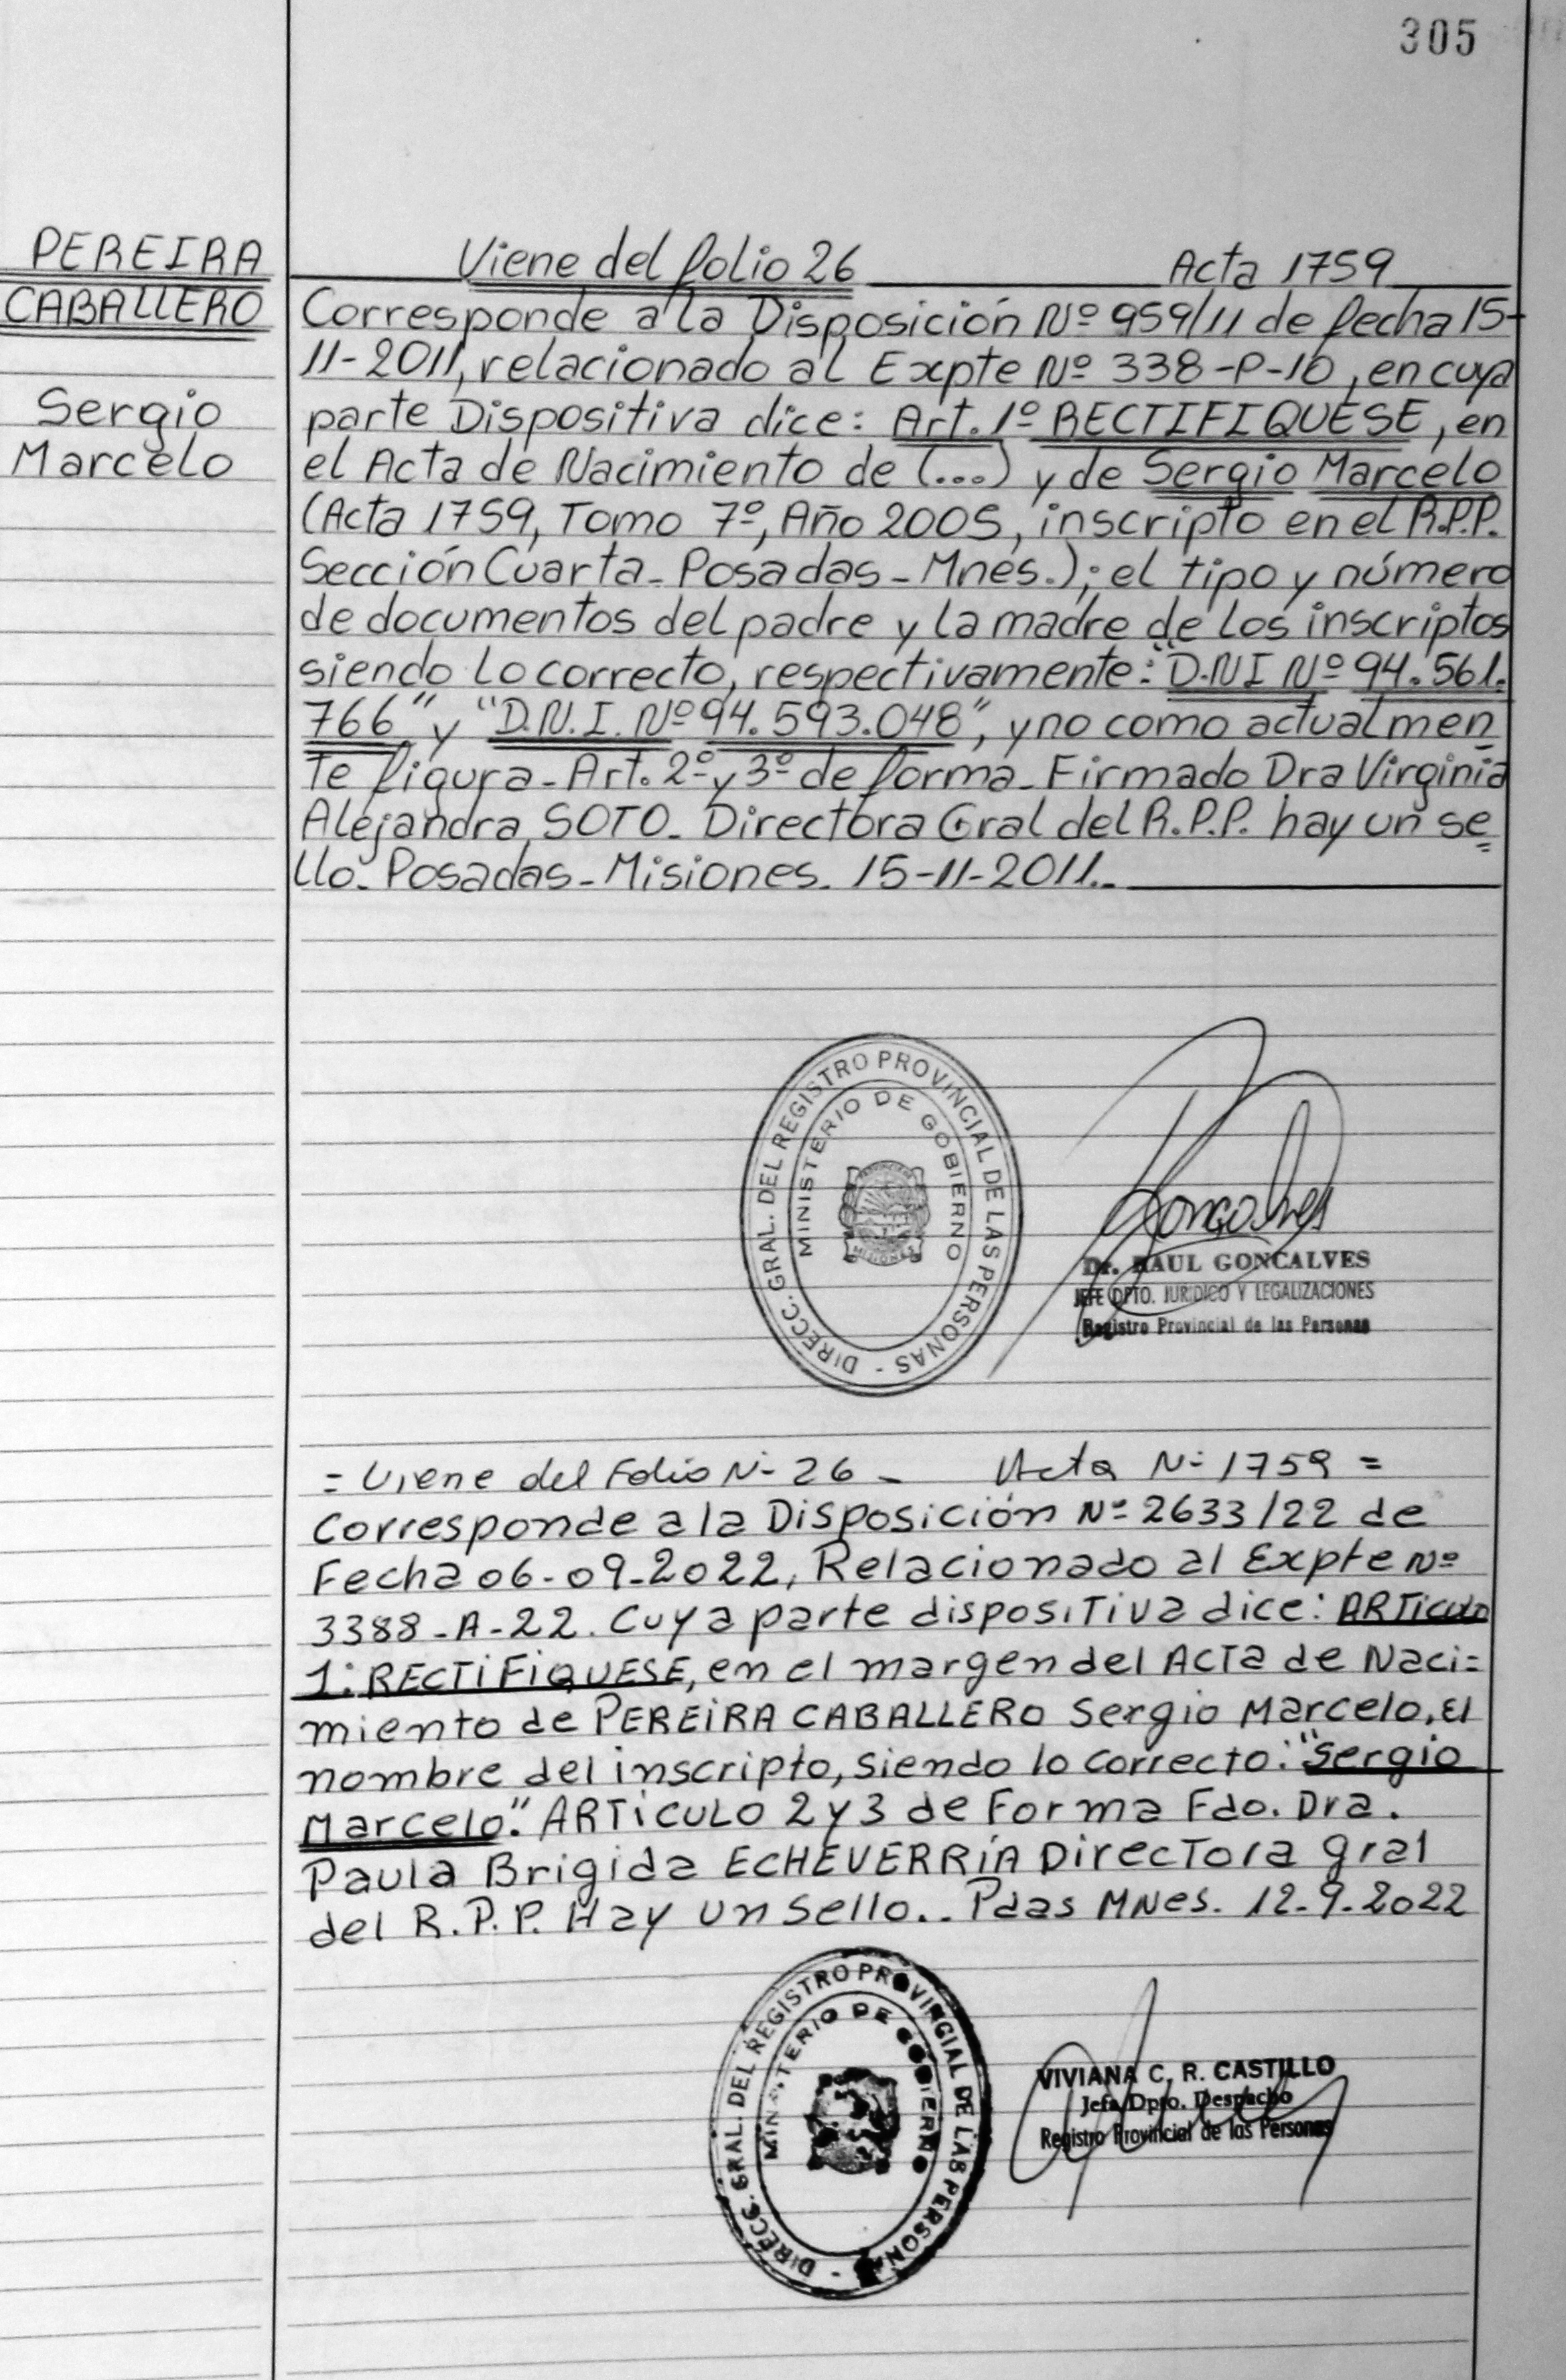 305
PEREIRA
CABALLERO
Sergio
Marcelo
Viene del folio 26 Acta 1759
Corresponde a la Disposición Nº 959/11 de fecha 15-
11-2011, relacionado al Expte Nº 338-P-10, en cuya
parte Dispositiva dice: Art. 1º RECTIFIQUESE, en
el Acta de Nacimiento de (...) y de Sergio Marcelo
(Acta 1759, Tomo 7º, Año 2005, inscripto en el R.P.P.
Sección Cuarta - Posadas - Mnes.); el tipo y número
de documentos del padre y la madre de los inscriptos
siendo lo correcto, respectivamente: "D.N.I Nº 94.561.
766" y "D.N.I. Nº 94.593.048", y no como actualmen
te figura - Art. 2º y 3º de forma - Firmado Dra Virginia
Alejandra SOTO - Directora Gral del R.P.P. hay un se=
llo - Posadas - Misiones - 15-11-2011.-
DIRECC. GRAL. DEL REGISTRO PROVINCIAL DE LAS PERSONAS -
MINISTERIO DE GOBIERNO
MISIONES
Dr. RAUL GONCALVES
JEFE DPTO. JURIDICO Y LEGALIZACIONES
Registro Provincial de las Personas
= Viene del Folio Nº 26 - Acta Nº 1759 =
Corresponde a la Disposición Nº 2633/22 de
Fecha 06-09-2022, Relacionado al Expte Nº
3388-A-22. Cuya parte dispositiva dice: ARTiculo
1: RECTiFiQUESE, en el margen del Acta de Naci=
miento de PEREiRA CABALLERO Sergio Marcelo, El
nombre del inscripto, Siendo lo correcto: "Sergio
Marcelo". ARTiCULO 2 y 3 de Forma Fdo. Dra.
Paula Brigida ECHEVERRÍA Directora gral
del R.P.P. Hay un Sello.. Pdas MNes. 12-9-2022
DIRECC. GRAL. DEL REGISTRO PROVINCIAL DE LAS PERSONAS -
MINISTERIO DE GOBIERNO
VIVIANA C. R. CASTILLO
Jefa Dpto. Despacho
Registro Provincial de las Personas